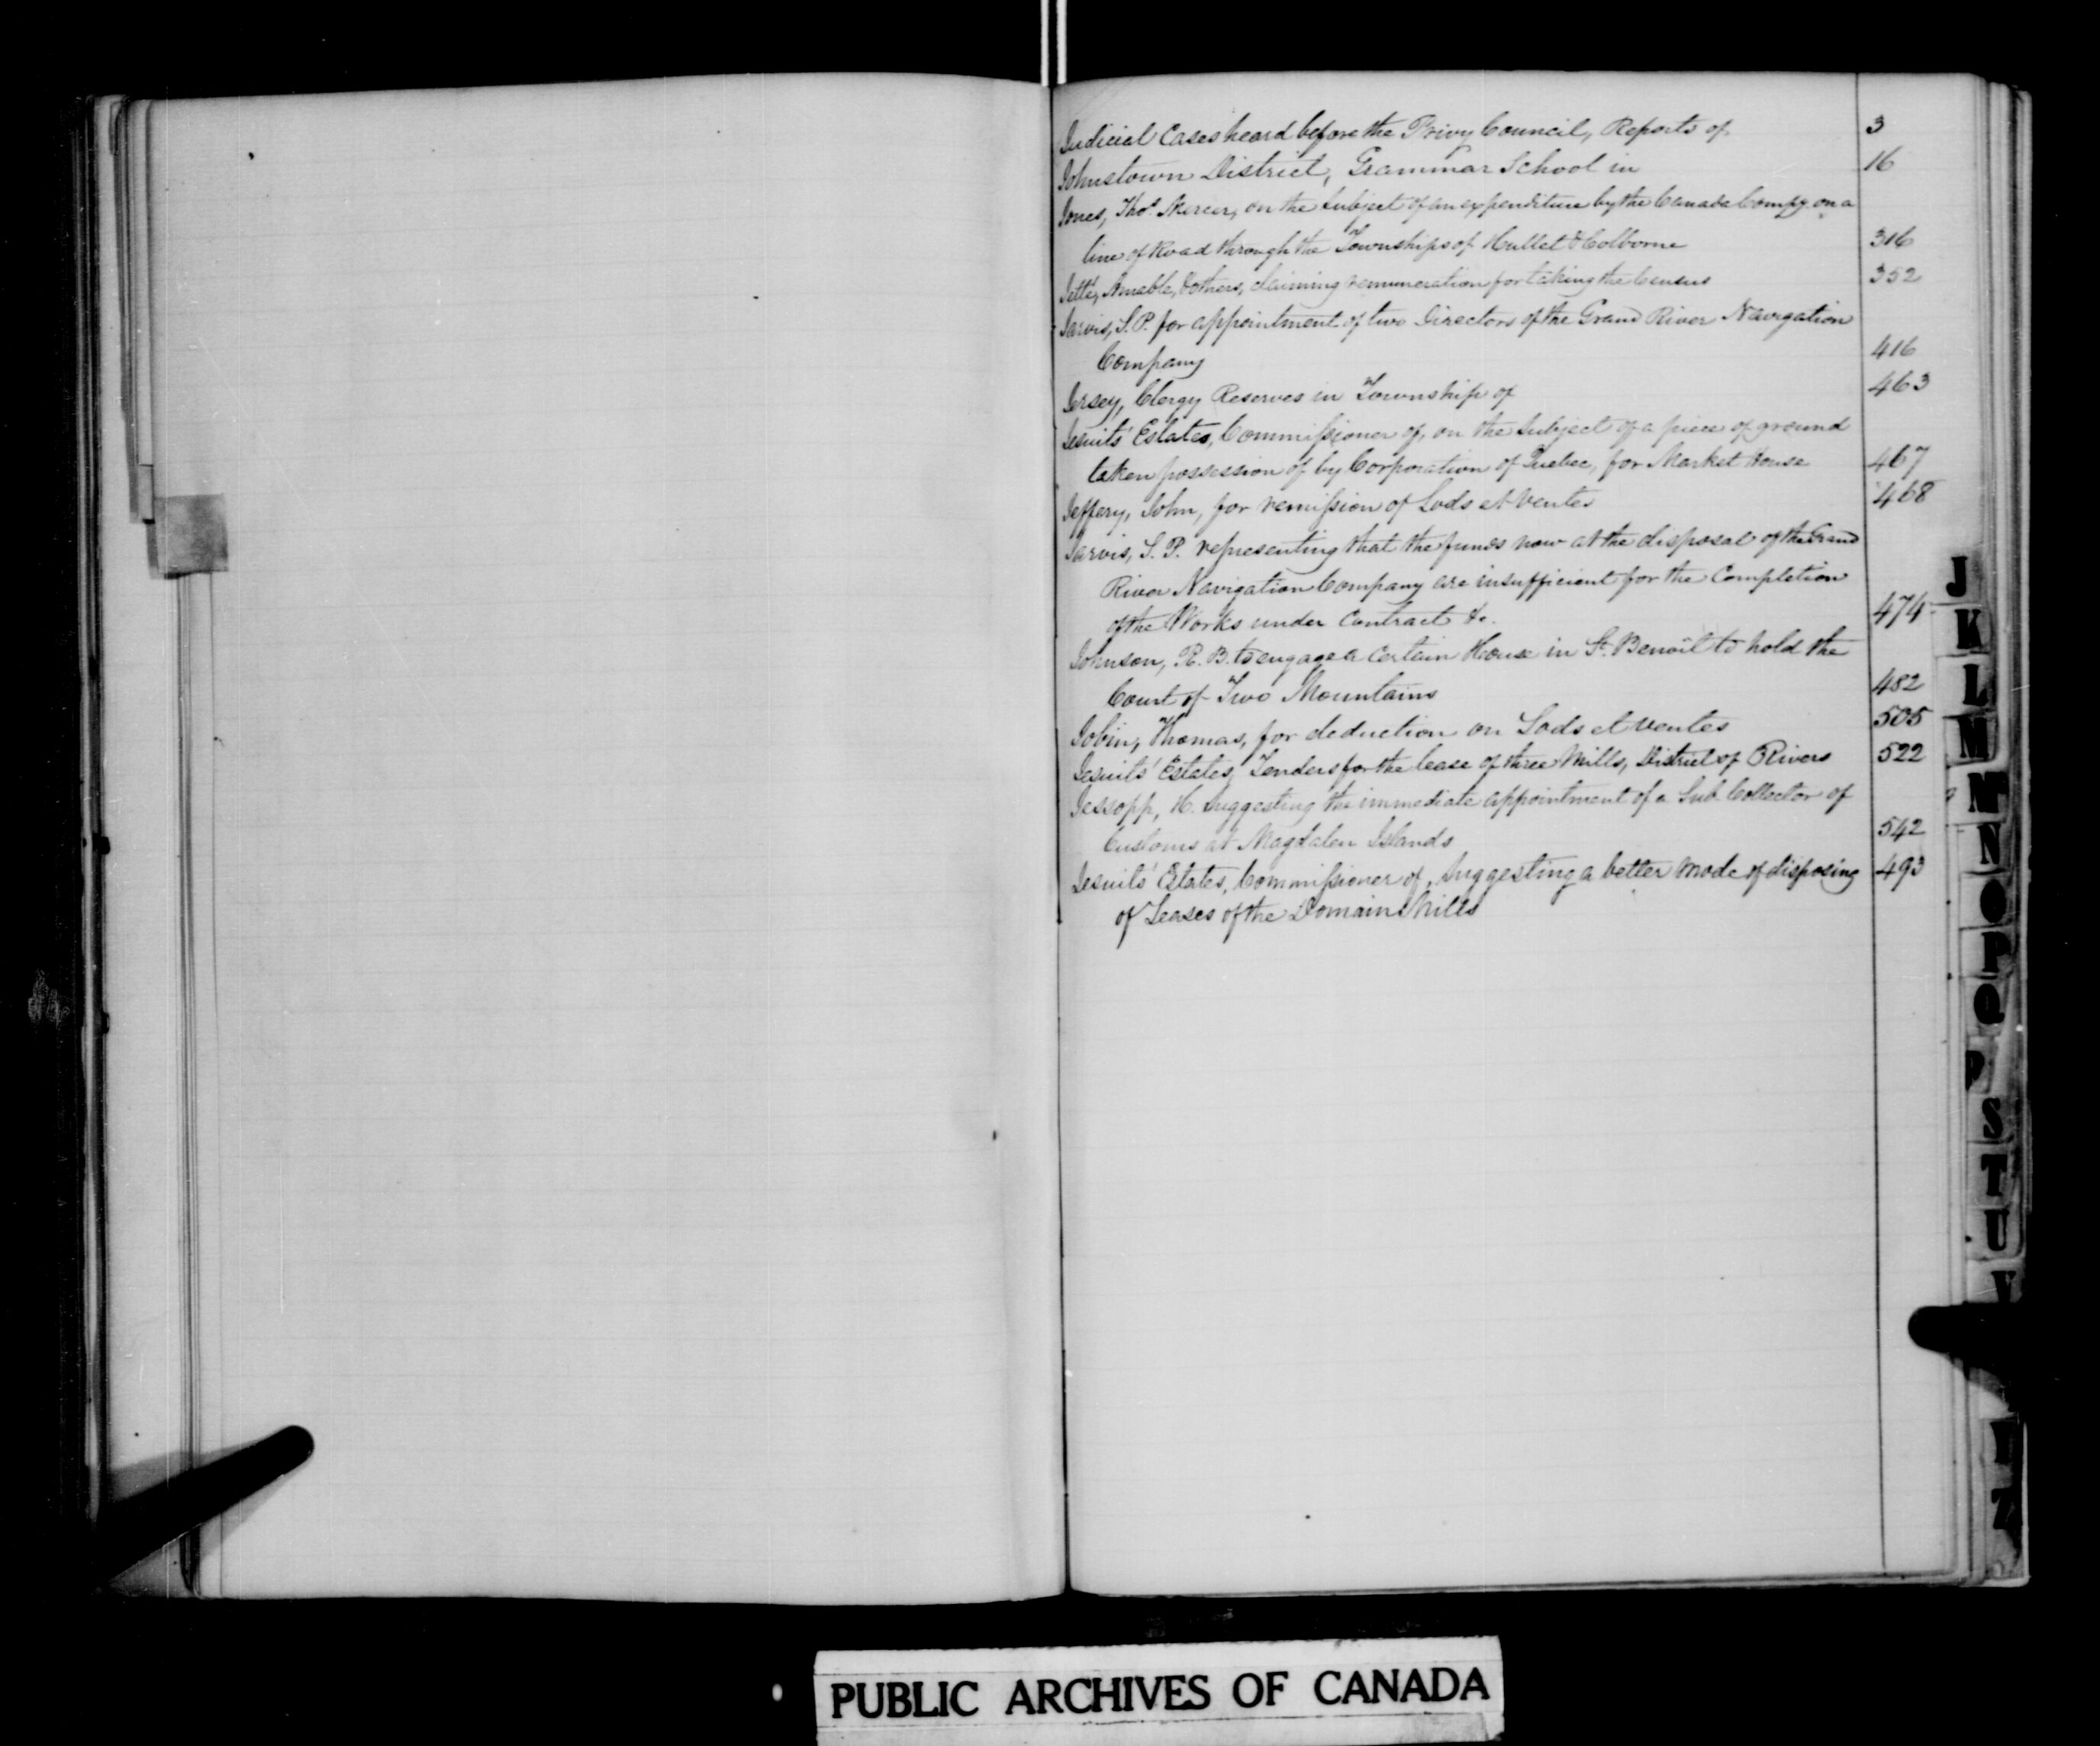 Judicial Cases heard before the Privy Council, Reports of 3
Johnstown District, Grammar School in 16
Jones, Thos. Mercer, on the Subject of an expenditure by the Canada Compy. on a
line of Road through the Townships of Hullet & Colborne 316
Jetté, Amable, & others, claiming remuneration for taking the Census 352
Jarvis, S. P. for appointment of two Directors of the Grand River Navigation
Company 416
Jersey, Clergy Reserves in Township of 463
Jesuits' Estates, Commissioner of, on the Subject of a piece of ground
taken possession of by Corporation of Quebec, for Market House 467
Jeffery, John, for remission of Lods et Ventes 468
Jarvis, S. P. representing that the funds now at the disposal of the Grand
River Navigation Company are insufficient for the Completion
of the Works under Contract &c. 474
Johnson, R. B. to engage a Certain House in St. Benoit to hold the
Court of Two Mountains 482
Jobin, Thomas, for deduction on Lods et Ventes 505
Jesuits' Estates, Tenders for the lease of three Mills, District of 3 Rivers 522
Jessopp, H. Suggesting the immediate appointment of a Sub Collector of
Customs at Magdalen Islands 542
Jesuits' Estates, Commissioner of, Suggesting a better mode of disposing 493
of Leases of the Domain Mills
J
K
L
M
N
O
P
Q
S
T
U
V
PUBLIC ARCHIVES OF CANADA